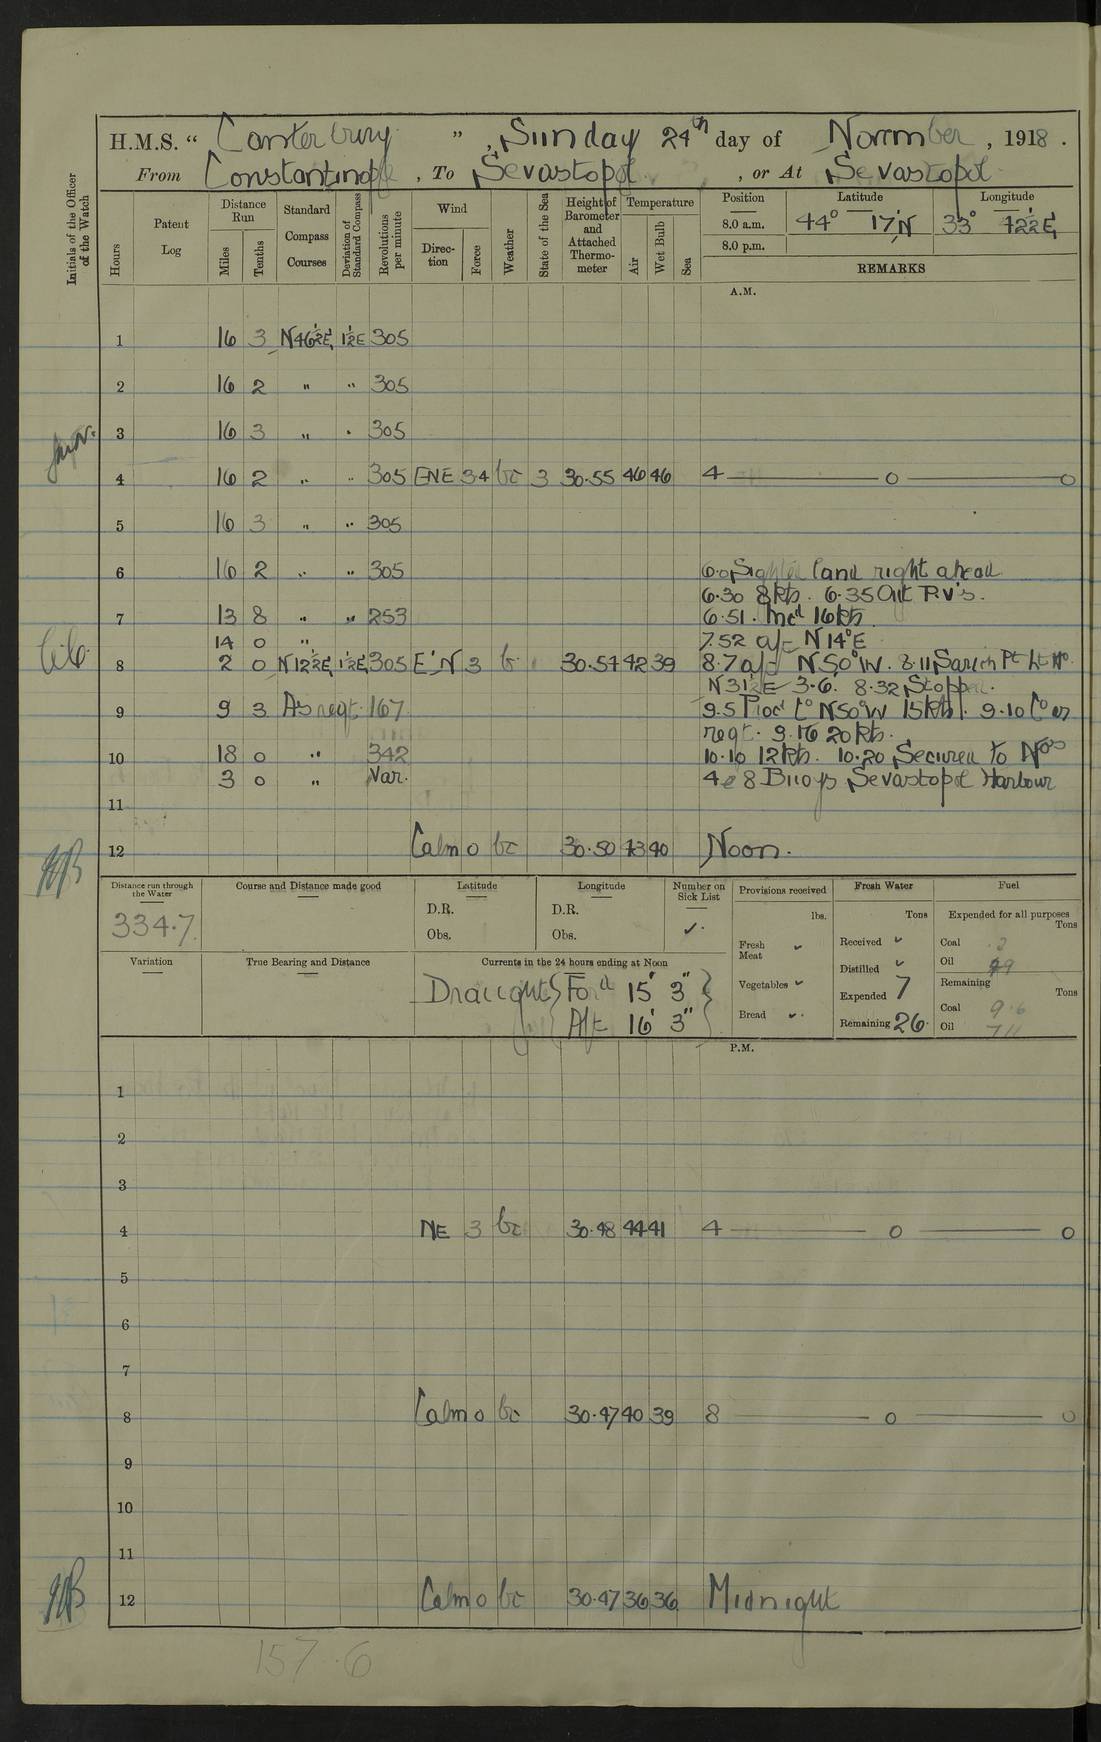 H.M.S. " Canterbury ", Sunday 24th day of November, 1918.
From Constantinople, To Sevastopol, or At Sevastopol
Initials of the Officer of the Watch
Hours
Patent Log
Distance Run
Miles
Tenths
Standard Compass Courses
Deviation of Standard Compass
Revolutions per minute
Wind
Direction
Force
Weather
State of the Sea
Height of Barometer and Attached Thermometer
Temperature
Air
Wet Bulb
Sea
Position
8.0 a.m.
8.0 p.m.
Latitude
44° 17'N
Longitude
33° 12½'E
REMARKS
A.M.
1 16 3 N46½E 1½E 305
2 16 2 " " 305
3 16 3 " " 305
4 16 2 " " 305 ENE 34 bc 3 30.55 46 46 4 — 0 — 0
5 16 3 " " 305
6 16 2 " " 305 6.0 Sighted land right ahead
6.30 8 Kts. 6.35 Out P.V's.
7 13 8 " " 253 6.51. Incd 16 Kts
14 0 " 7.52 a/c N14°E
8 2 0 N12½E 1½E 305 E'N 3 b 30.54 42 39 8.7 a/c N50°W. 8.11 Sarich Pt Lt Ho.
N31½E 3.6. 8.32 Stopped.
9 9 3 As reqt. 167 9.5 Procd Co N50°W 15 Kts. 9.10 Co as
reqt. 9.16 20 Kts.
10 18 0 " 342 10.10 12 Kts. 10.20 Secured to Nos
3 0 " Var. 4 & 8 Buoys Sevastopol Harbour
11
12 Calm 0 bc 30.50 43 40 Noon.
Distance run through the Water
334.7
Course and Distance made good
Latitude
D.R.
Obs.
Longitude
D.R.
Obs.
Number on Sick List
✓
Provisions received
lbs.
Fresh Meat ✓
Vegetables ✓
Bread ✓
Fresh Water
Tons
Received ✓
Distilled ✓
Expended 7
Remaining 26.
Fuel
Expended for all purposes
Tons
Coal .2
Oil
Remaining
Tons
Coal 9.6
Oil 711
Variation
True Bearing and Distance
Currents in the 24 hours ending at Noon
Draught { For'd 15' 3" }
Aft 16' 3"
P.M.
1
2
3
4 NE 3 bc 30.48 44 41 4 — 0 — 0
5
6
7
8 Calm 0 bc 30.47 40 39 8 — 0 — 0
9
10
11
12 Calm 0 bc 30.47 36 36 Midnight
157.6